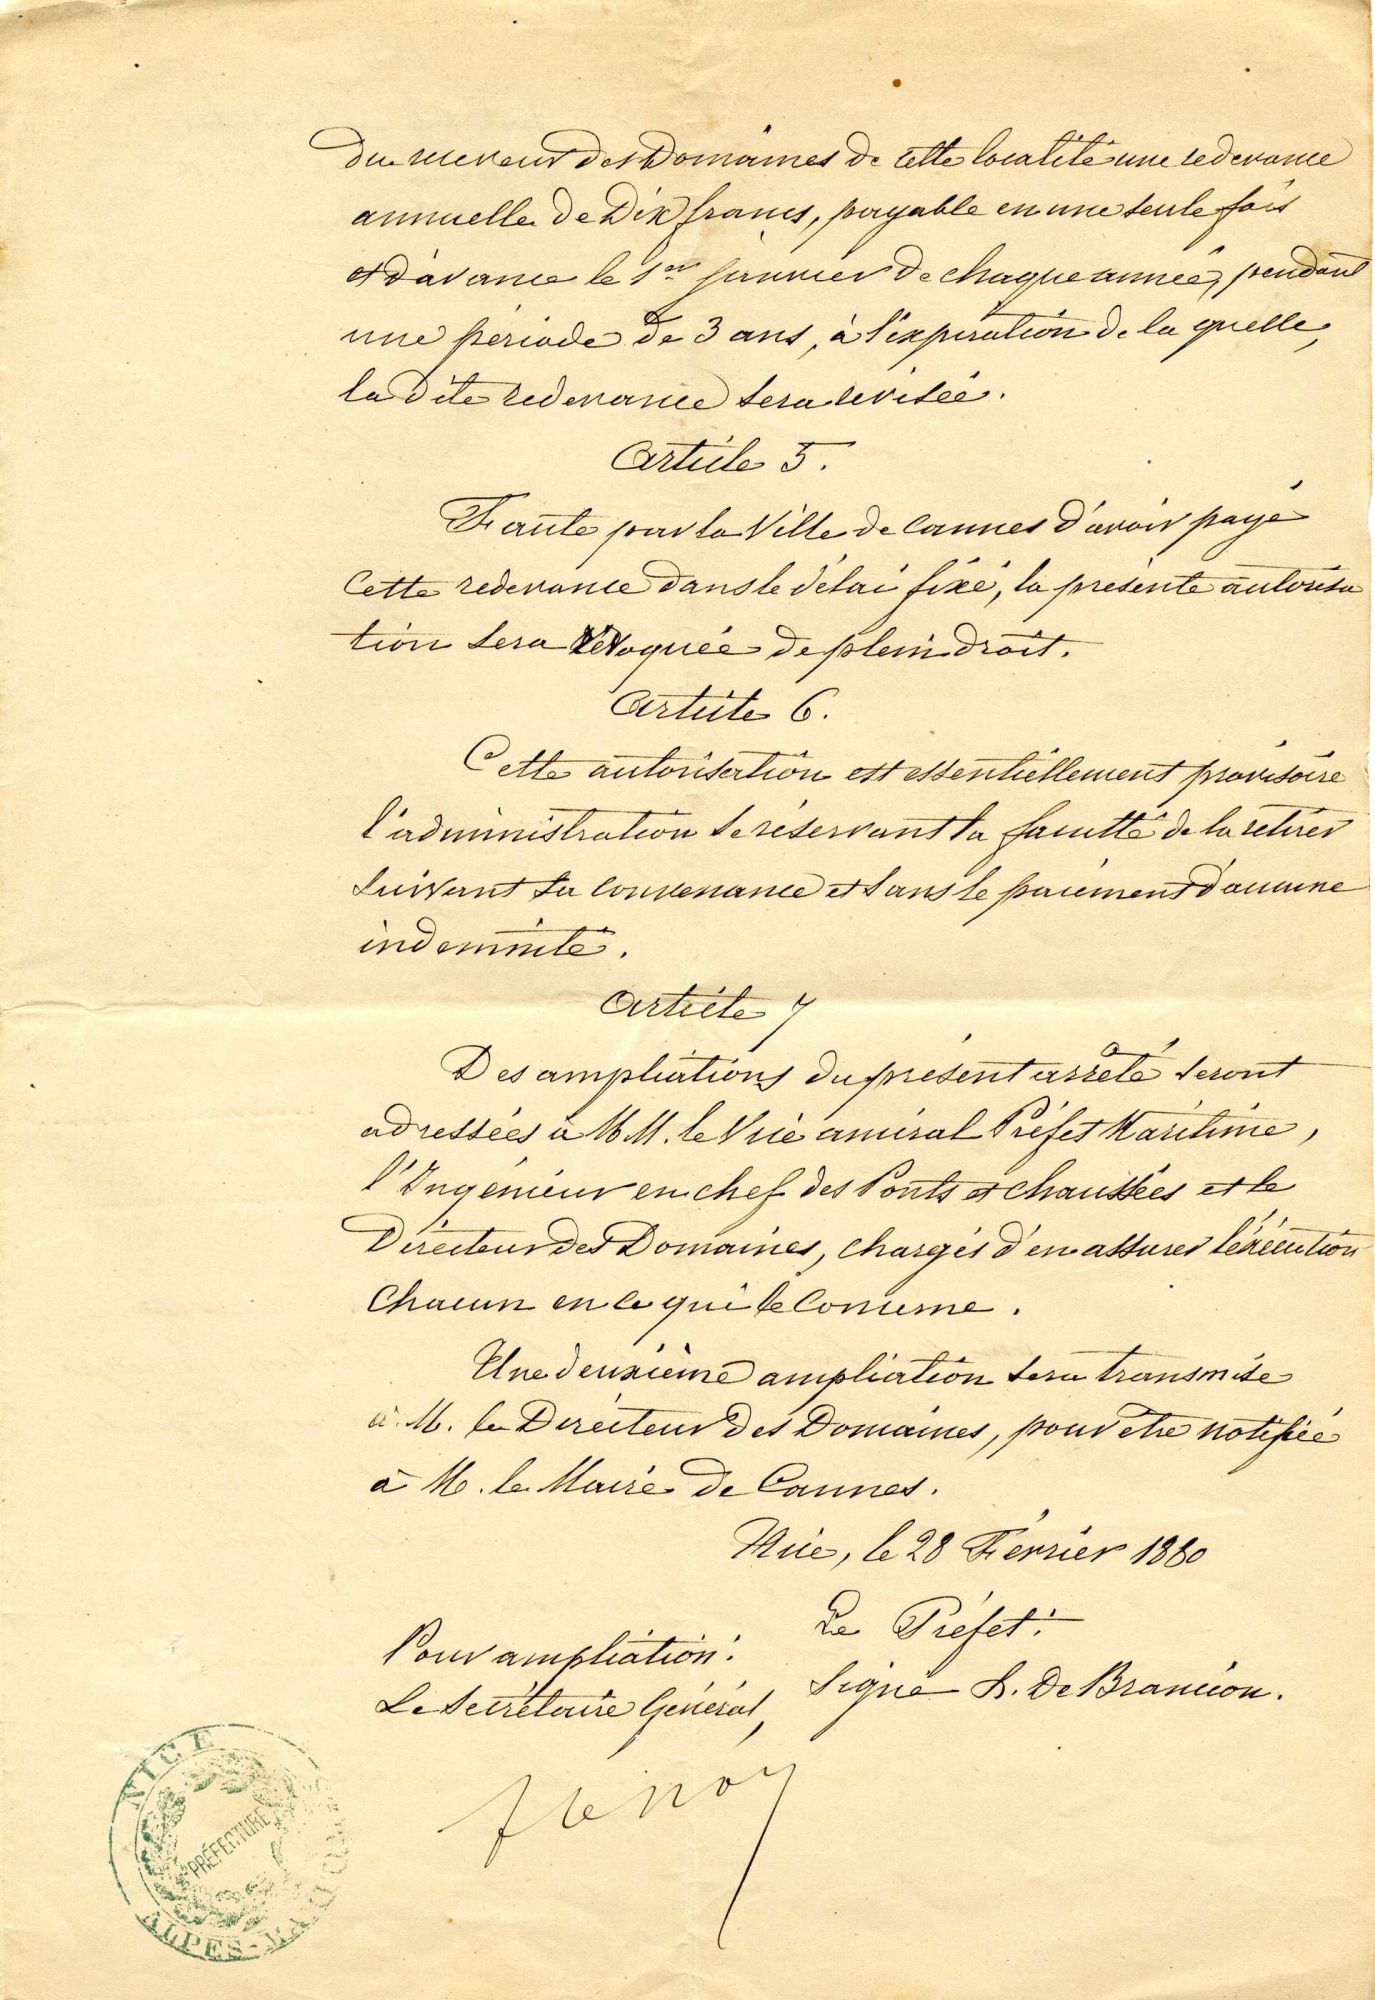 du receveur des Domaines de cette localité une redevance
annuelle de Dix francs, payable en une seule fois
et d'avance le 1er janvier de chaque année, pendant
une période de 3 ans, à l'expiration de la quelle,
la dite redevance sera revisée.
Article 5.
Faute par la Ville de Cannes d'avoir payé
cette redevance dans le délai fixé, la présente autorisa
tion sera révoquée de plein droit.
Article 6.
Cette autorisation est essentiellement provisoire
l'administration se réservant la faculté de la retirer
suivant sa convenance et sans le paiement d'aucune
indemnité.
Article 7
Des ampliations du présent arrêté seront
adressées à M M. le Vice amiral Préfet Maritime,
l'Ingénieur en chef des Ponts et chaussées et le
Directeur des Domaines, chargés d'en assurer l'exécution
chacun en ce qui le concerne.
Une deuxième ampliation sera transmise
à M. le Directeur des Domaines, pour être notifiée
à M. le Maire de Cannes.
Nice, le 28 Février 1880
Le Préfet:
Signé L. De Brancion.
Pour ampliation:
Le Secrétaire Général,
NICE
PRÉFECTURE
ALPES-MARITIMES